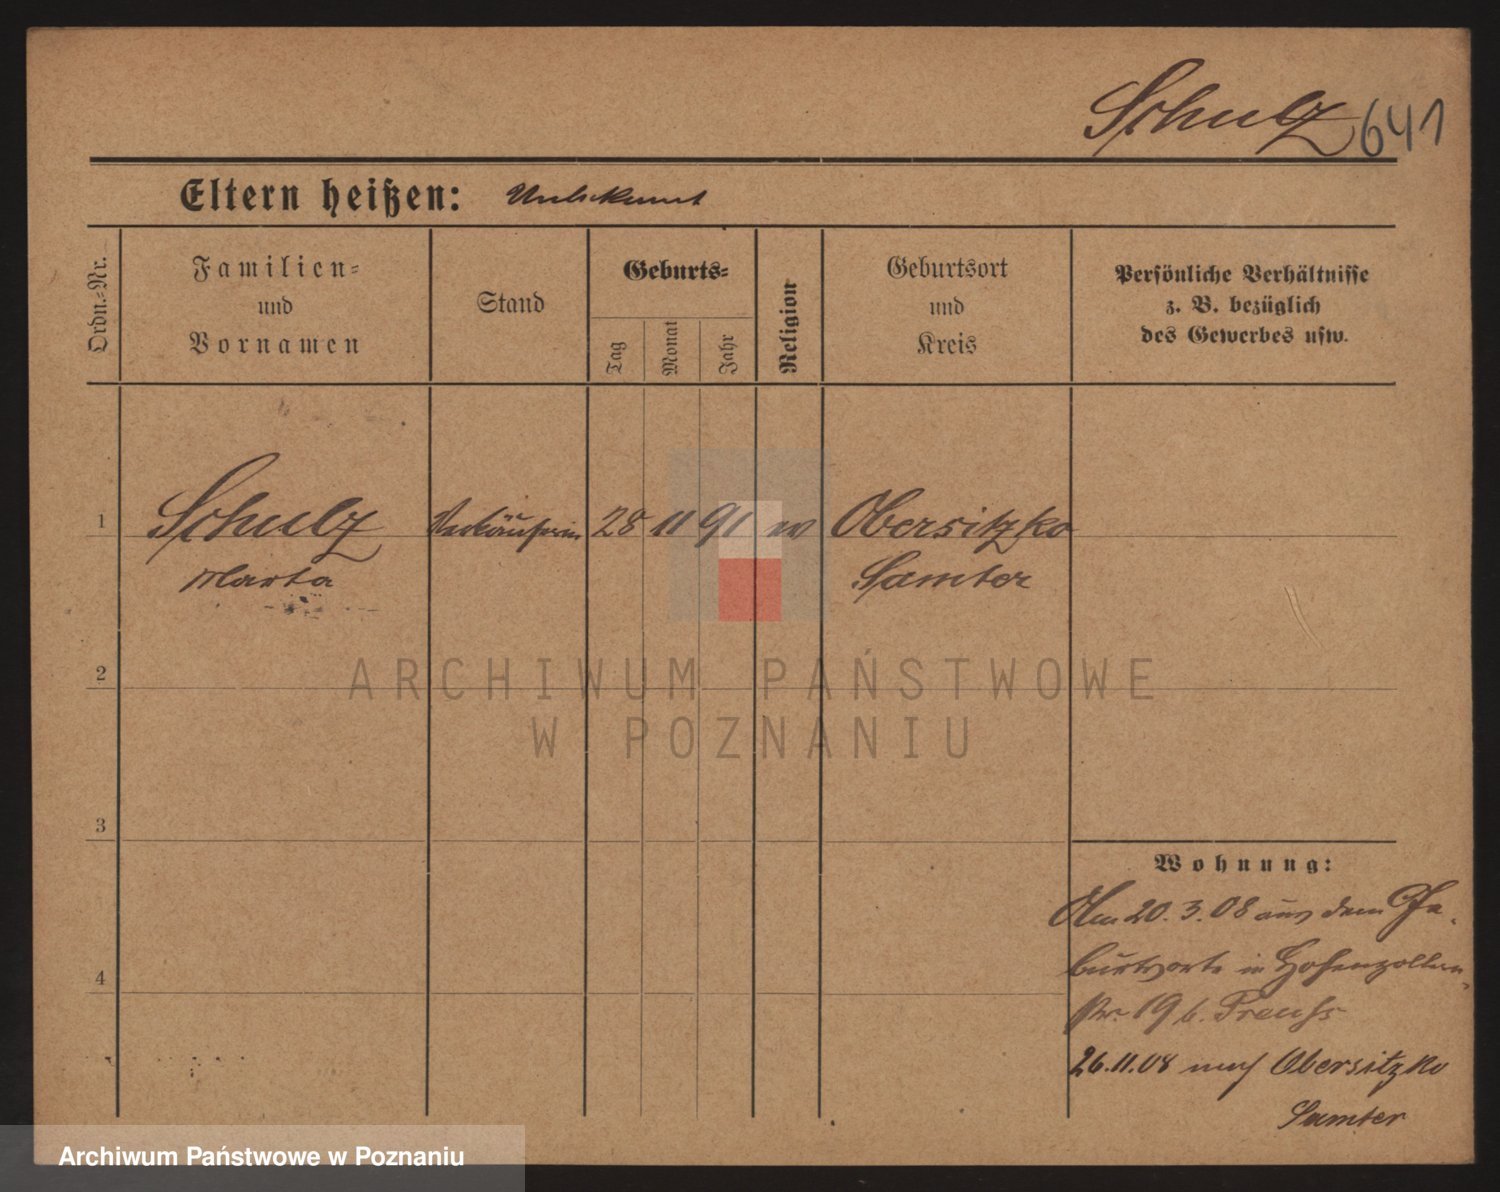 Schulz 641
Eltern heißen: Unbekannt
Ordn.-Nr.
Familien-
und
Vornamen
Stand
Geburts-
Tag
Monat
Jahr
Religion
Geburtsort
und
Kreis
Persönliche Verhältnisse
z. B. bezüglich
des Gewerbes usw.
1 Schulz Verkäuferin 28 11 91 ev Obersitzko
Marta Samter
2
ARCHIWUM PAŃSTWOWE
W POZNANIU
3
Wohnung:
Am 20.3.08 aus dem Ge-
burtsorte in Hohenzollern-
str. 19 b. Preuss
4
26.11.08 nach Obersitzko
Samter
Archiwum Państwowe w Poznaniu